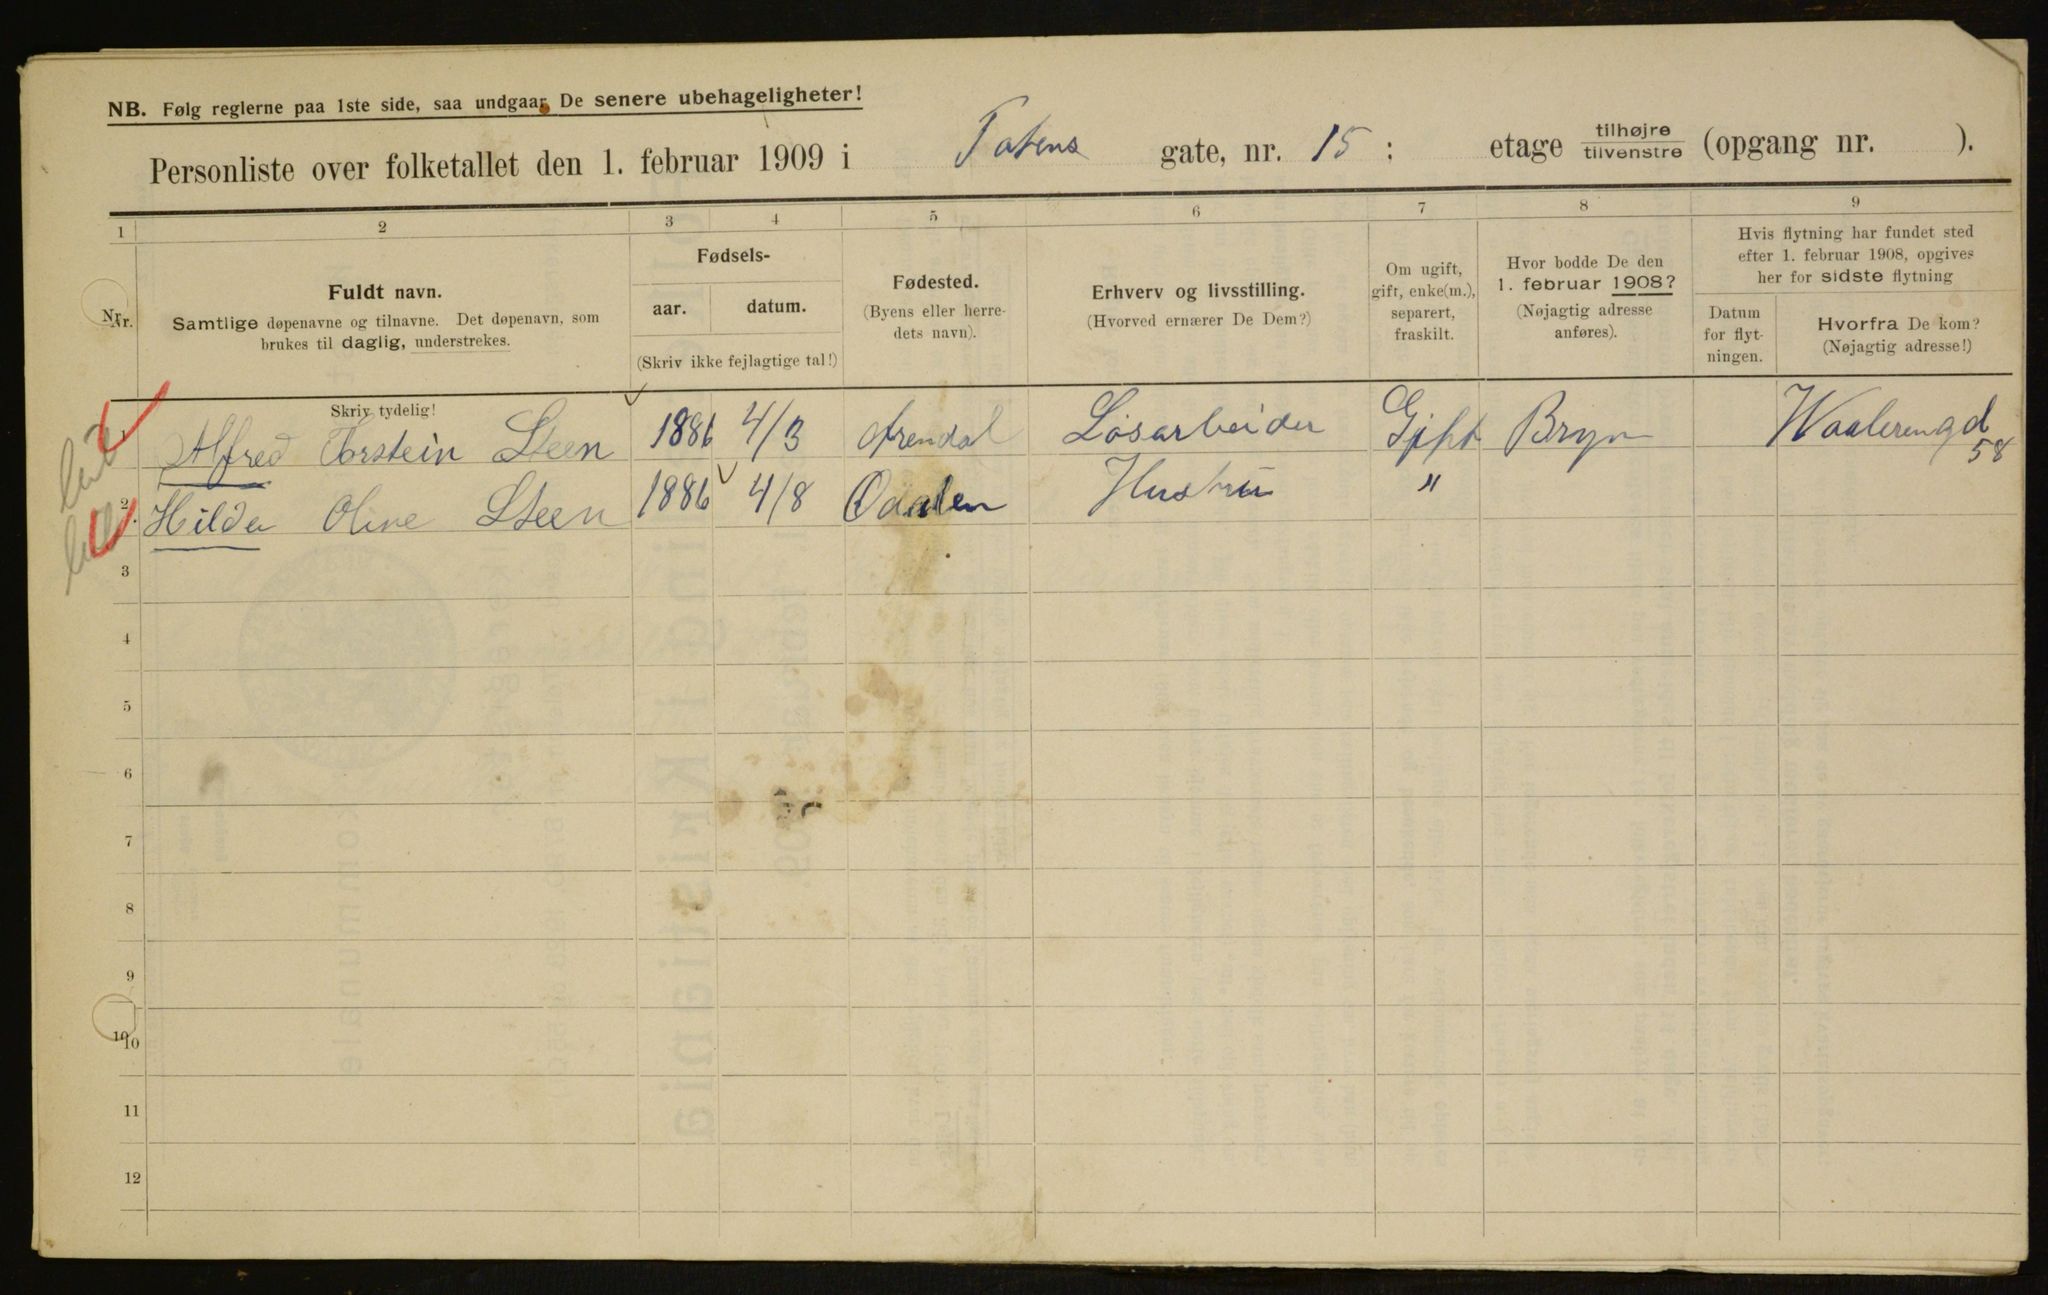 NB. Følg reglerne paa 1ste side, saa undgaar De senere ubehageligheter!
Personliste over folketallet den 1. februar 1909 i Totens gate, nr. 15 ; etage tilhøjre/tilvenstre (opgang nr. ).
1 2 3 4 5 6 7 8 9
Nr. Nr.
Fuldt navn.
Samtlige døpenavne og tilnavne. Det døpenavn, som
brukes til daglig, understrekes.
Skriv tydelig!
Fødsels-
aar. datum.
(Skriv ikke fejlagtige tal!)
Fødested.
(Byens eller herre-
dets navn).
Erhverv og livsstilling.
(Hvorved ernærer De Dem?)
Om ugift,
gift, enke(m.),
separert,
fraskilt.
Hvor bodde De den
1. februar 1908?
(Nøjagtig adresse
anføres).
Hvis flytning har fundet sted
efter 1. februar 1908, opgives
her for sidste flytning
Datum
for flyt-
ningen.
Hvorfra De kom?
(Nøjagtig adresse!)
1 Alfred Torstein Steen 1886 4/3 Arendal Løsarbeider Gift Bryn Waalerengd 58
2 Hilda Oline Steen 1886 4/8 Odalen Hustru "
3
4
5
6
7
8
9
10 10
11
12